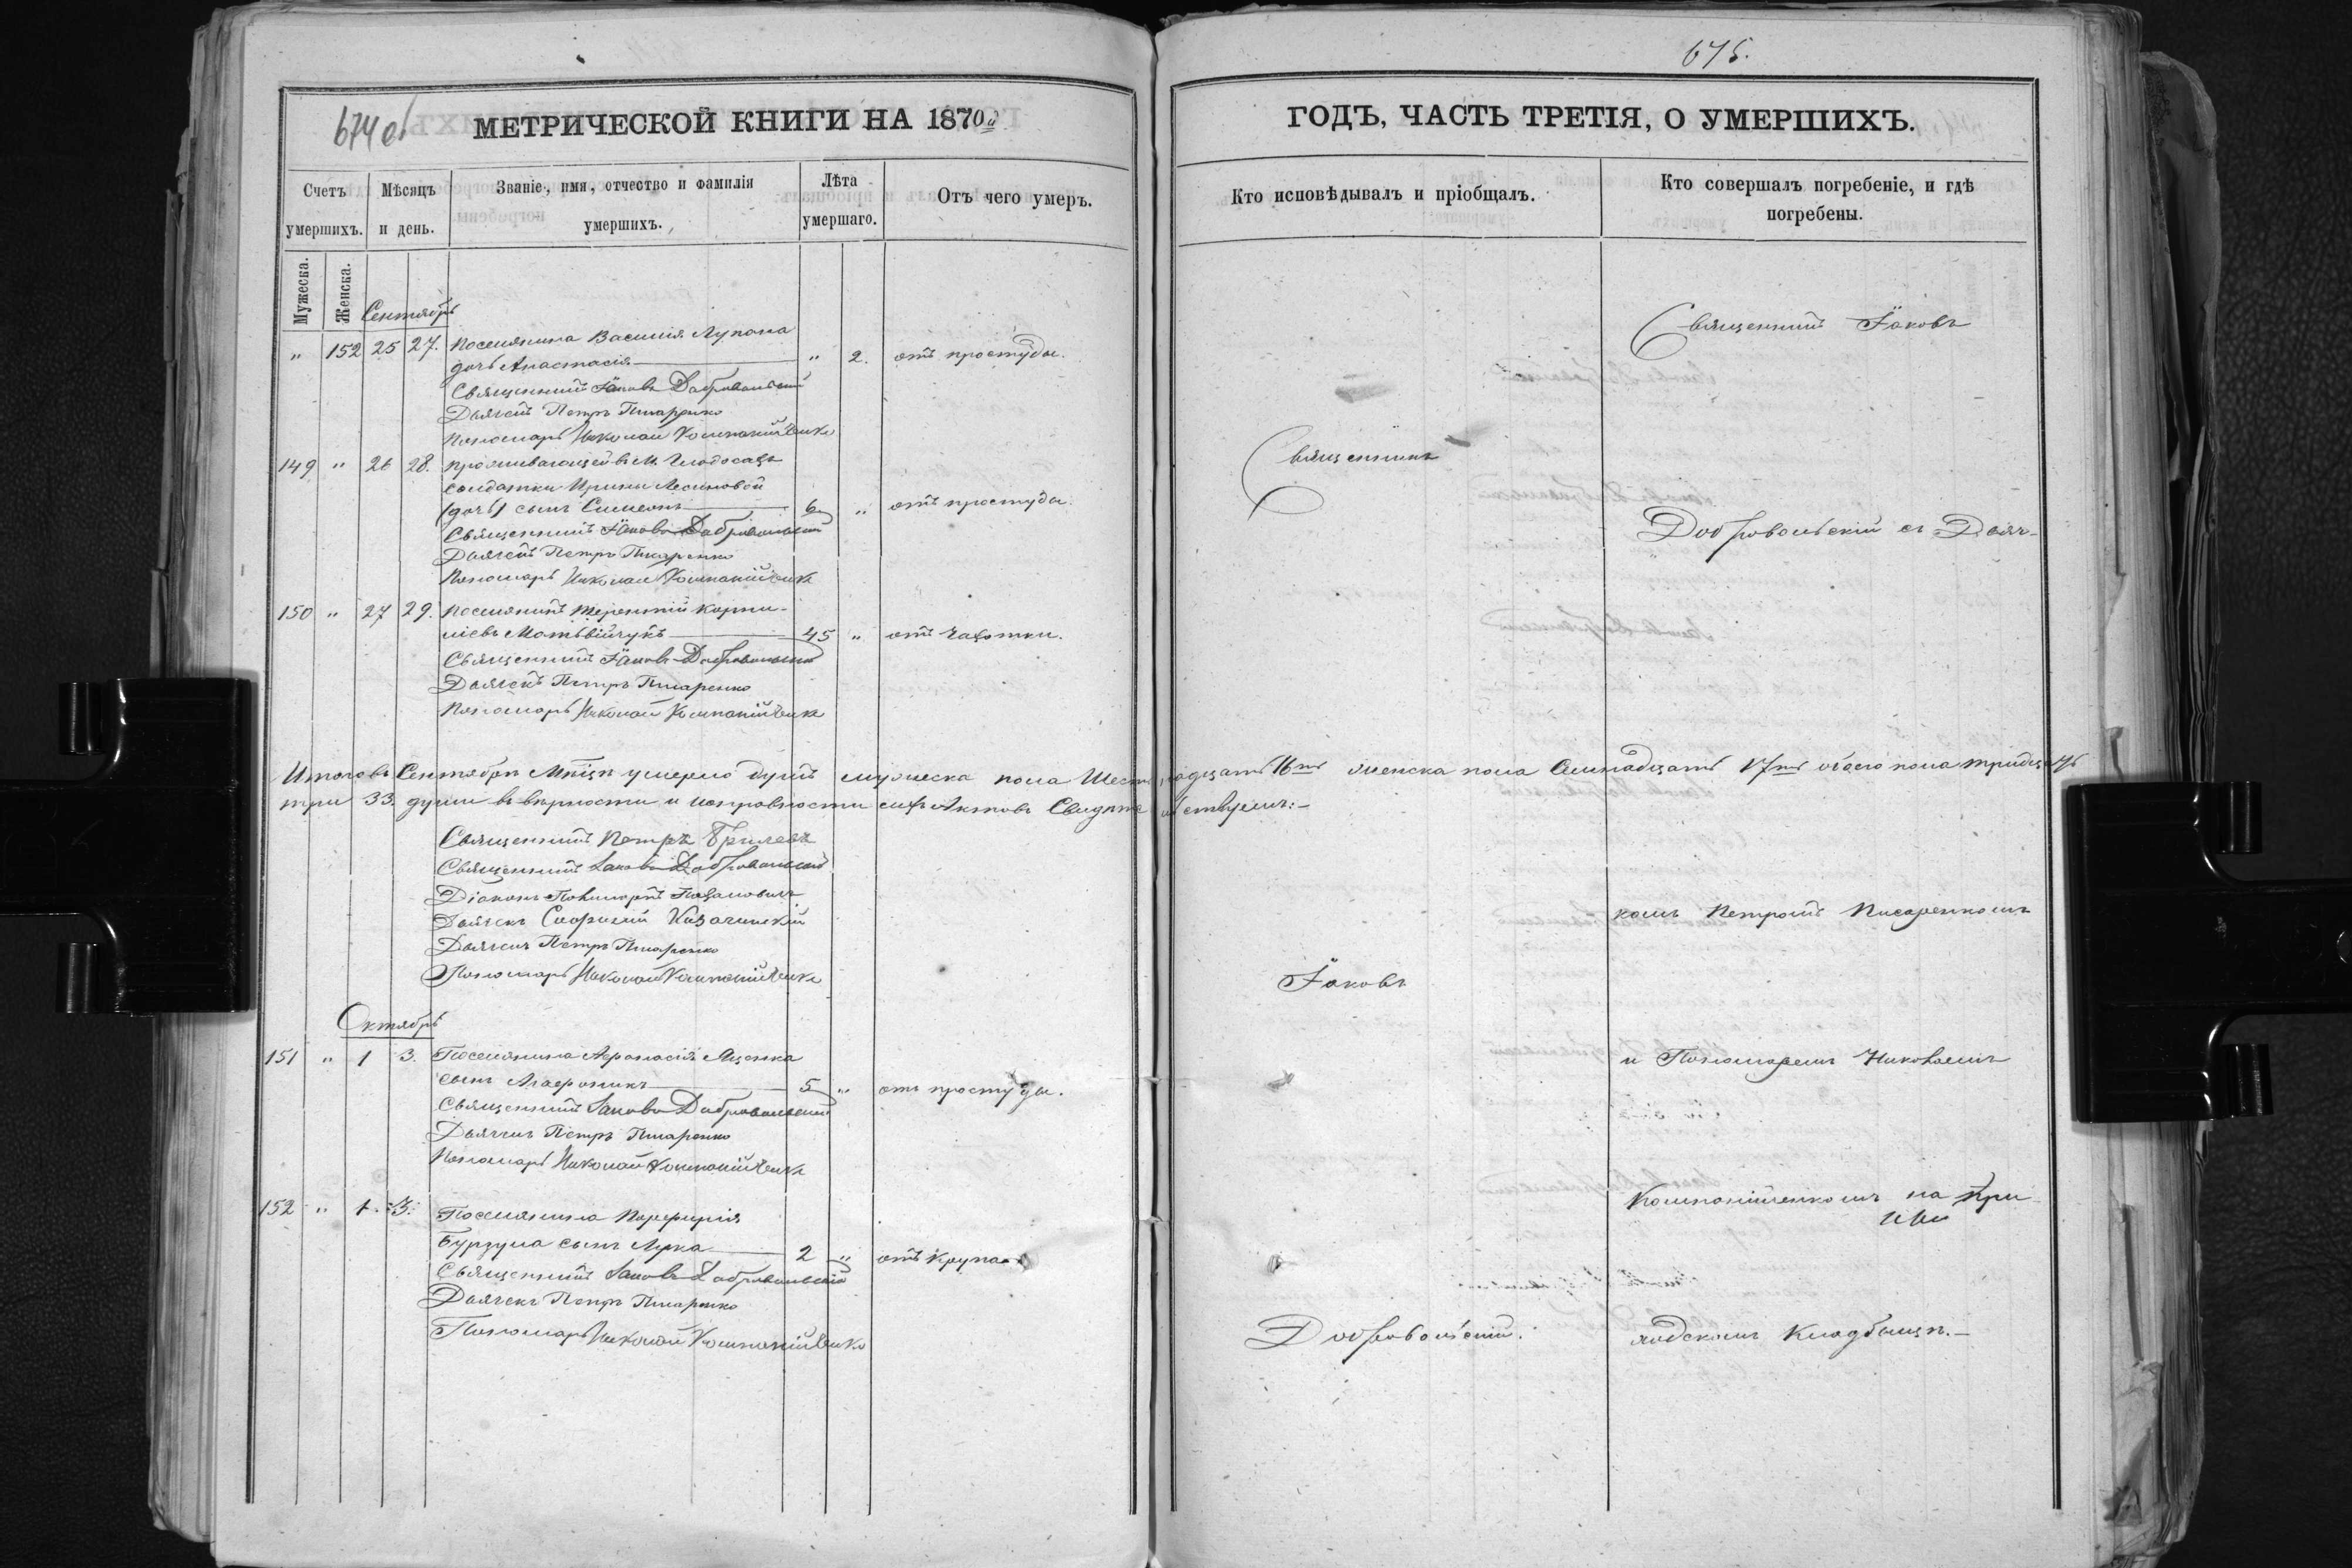 674об
МЕТРИЧЕСКОЙ КНИГИ НА 1870й
Счетъ умершихъ.
Мѣсяцъ и день.
Званіе, имя, отчество и фамилія умершихъ.
Лѣта умершаго.
Отъ чего умеръ.
Мужеска.
Женска.
Сентябрь
" 152 25 27. Поселянина Василія Лупана
дочь Анастасія " 2. отъ простуды.
Священникъ Іаковъ Добровольскій
Дьячекъ Петръ Писаренко
Пономарь Николай Компанійченко
149 " 26 28. проживающей въ М. Глодосахъ
солдатки Ирины Лесиковой
(дочь) сынъ Симеонъ 6 " отъ простуды.
Священникъ Іаковъ Добровольскій
Дьячекъ Петръ Писаренко
Пономарь Николай Компанійченко
150 " 27 29. Поселянинъ Терентій Корни-
ліевъ Матвійчукъ 45 " отъ чахотки.
Священникъ Іаковъ Добровольскій
Дьячекъ Петръ Писаренко
Пономарь Николай Компанійченко
Итого въ Сентябрѣ Мѣсяцѣ умерло душъ мужеска пола Шестнадцать 16ть женска пола Семнадцать 17ть обоего пола тридцать
три 33. души въ вѣрности и исправности сихъ Актовъ Свидѣтельствуемъ:-
Священникъ Петръ
Священникъ Іаковъ Добровольскій
Діаконъ
Дьячекъ Казачинскій
Дьячекъ Петръ Писаренко
Пономарь Николай Компанійченко
Октябрь
151 " 1 3. Поселянина Афанасія Яценка
сынъ 5 " отъ простуды.
Священникъ Іаковъ Добровольскій
Дьячекъ Петръ Писаренко
Пономарь Николай Компанійченко
152 " 1. 3. Поселянина Порфирія
сынъ Лука 2 " отъ крупа
Священникъ Іаковъ Добровольскій
Дьячекъ Петръ Писаренко
Пономарь Николай Компанійченко
675.
ГОДЪ, ЧАСТЬ ТРЕТІЯ, О УМЕРШИХЪ.
Кто исповѣдывалъ и пріобщалъ.
Кто совершалъ погребеніе, и гдѣ погребены.
Священникъ
Іаковъ
Добровольскій.
Священникъ Іаковъ
Добровольскій съ Дьяч-
комъ Петромъ Писаренкомъ
и Пономаремъ Николаемъ
Компанійченкомъ на При-
ходскомъ Кладбищѣ.—